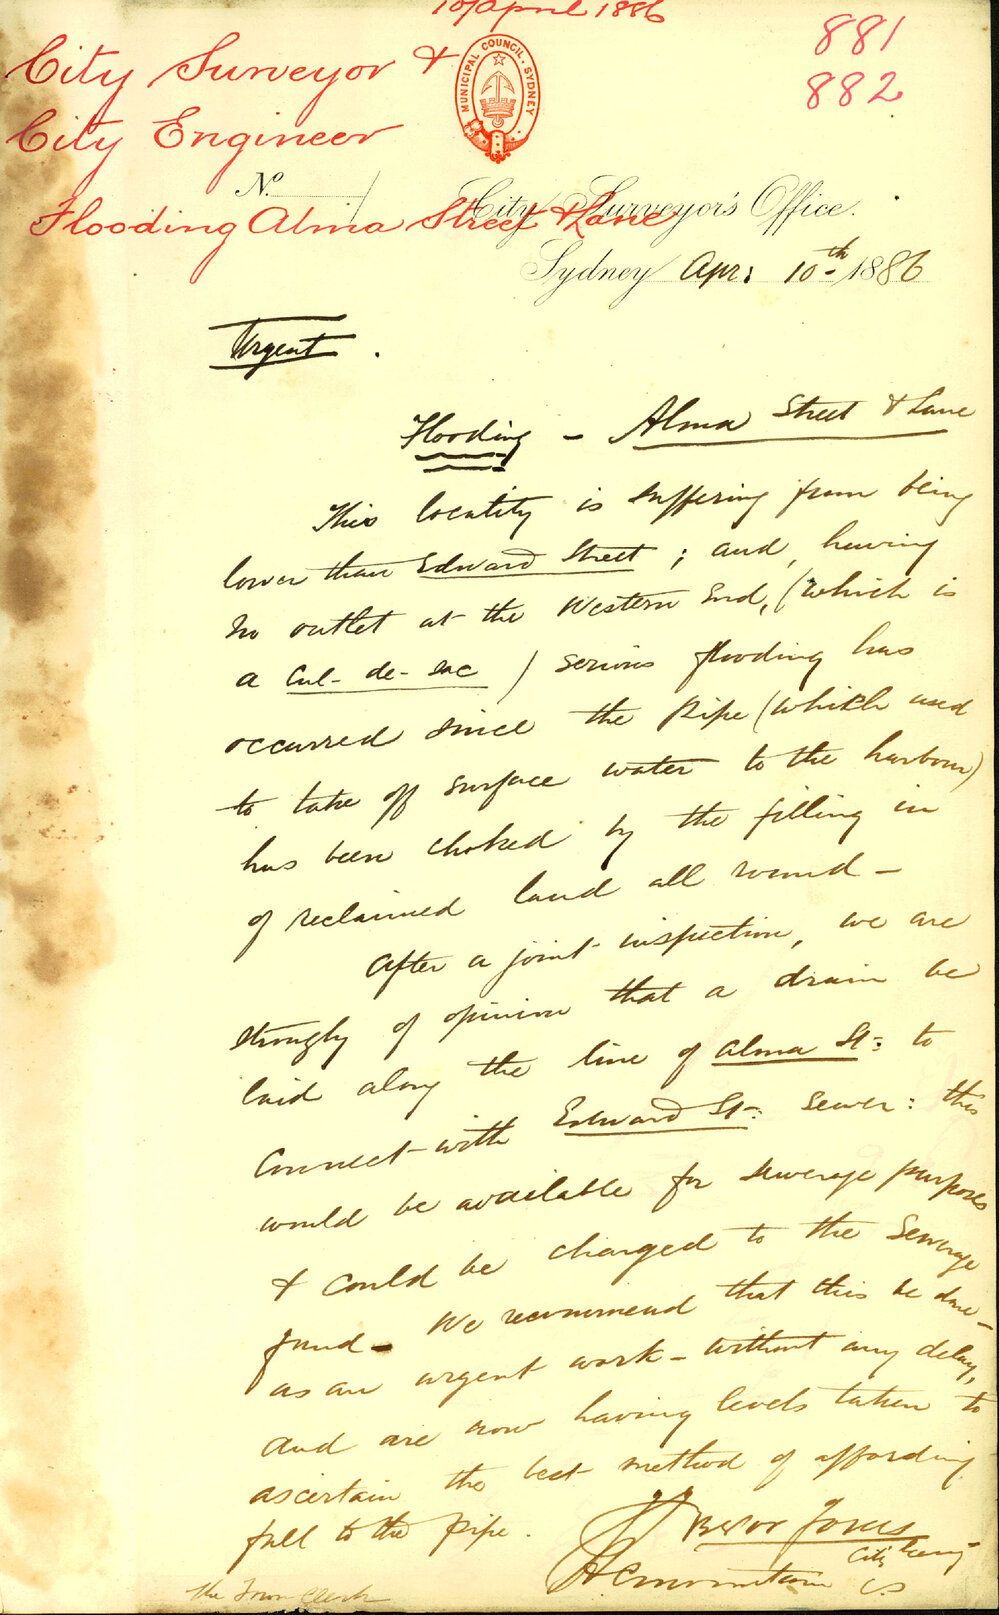 10/April 1886
881
882
City Surveyor &
City Engineer
MUNICIPAL COUNCIL. SYDNEY
No.
City Surveyor's Office.
Flooding Alma Street & Lane
Sydney Apr: 10th 1886
Urgent.
Flooding - Alma Street & Lane
This locality is suffering from being
lower than Edward Street; and, having
no outlet at the Western End, (which is
a Cul-de-sac) serious flooding has
occurred since the pipe (which used
to take off surface water to the harbour)
has been choked by the filling in
of reclaimed land all round -
After a joint inspection, we are
strongly of opinion that a drain be
laid along the line of Alma St: to
connect with Edward St: Sewer: this
would be available for sewerage purposes
& could be charged to the Sewerage
fund - We recommend that this be done -
as an urgent work - without any delay,
and are now having levels taken to
ascertain the best method of affording
fall to the pipe.
Trevor Jones
City Eng
CS
The Town Clerk